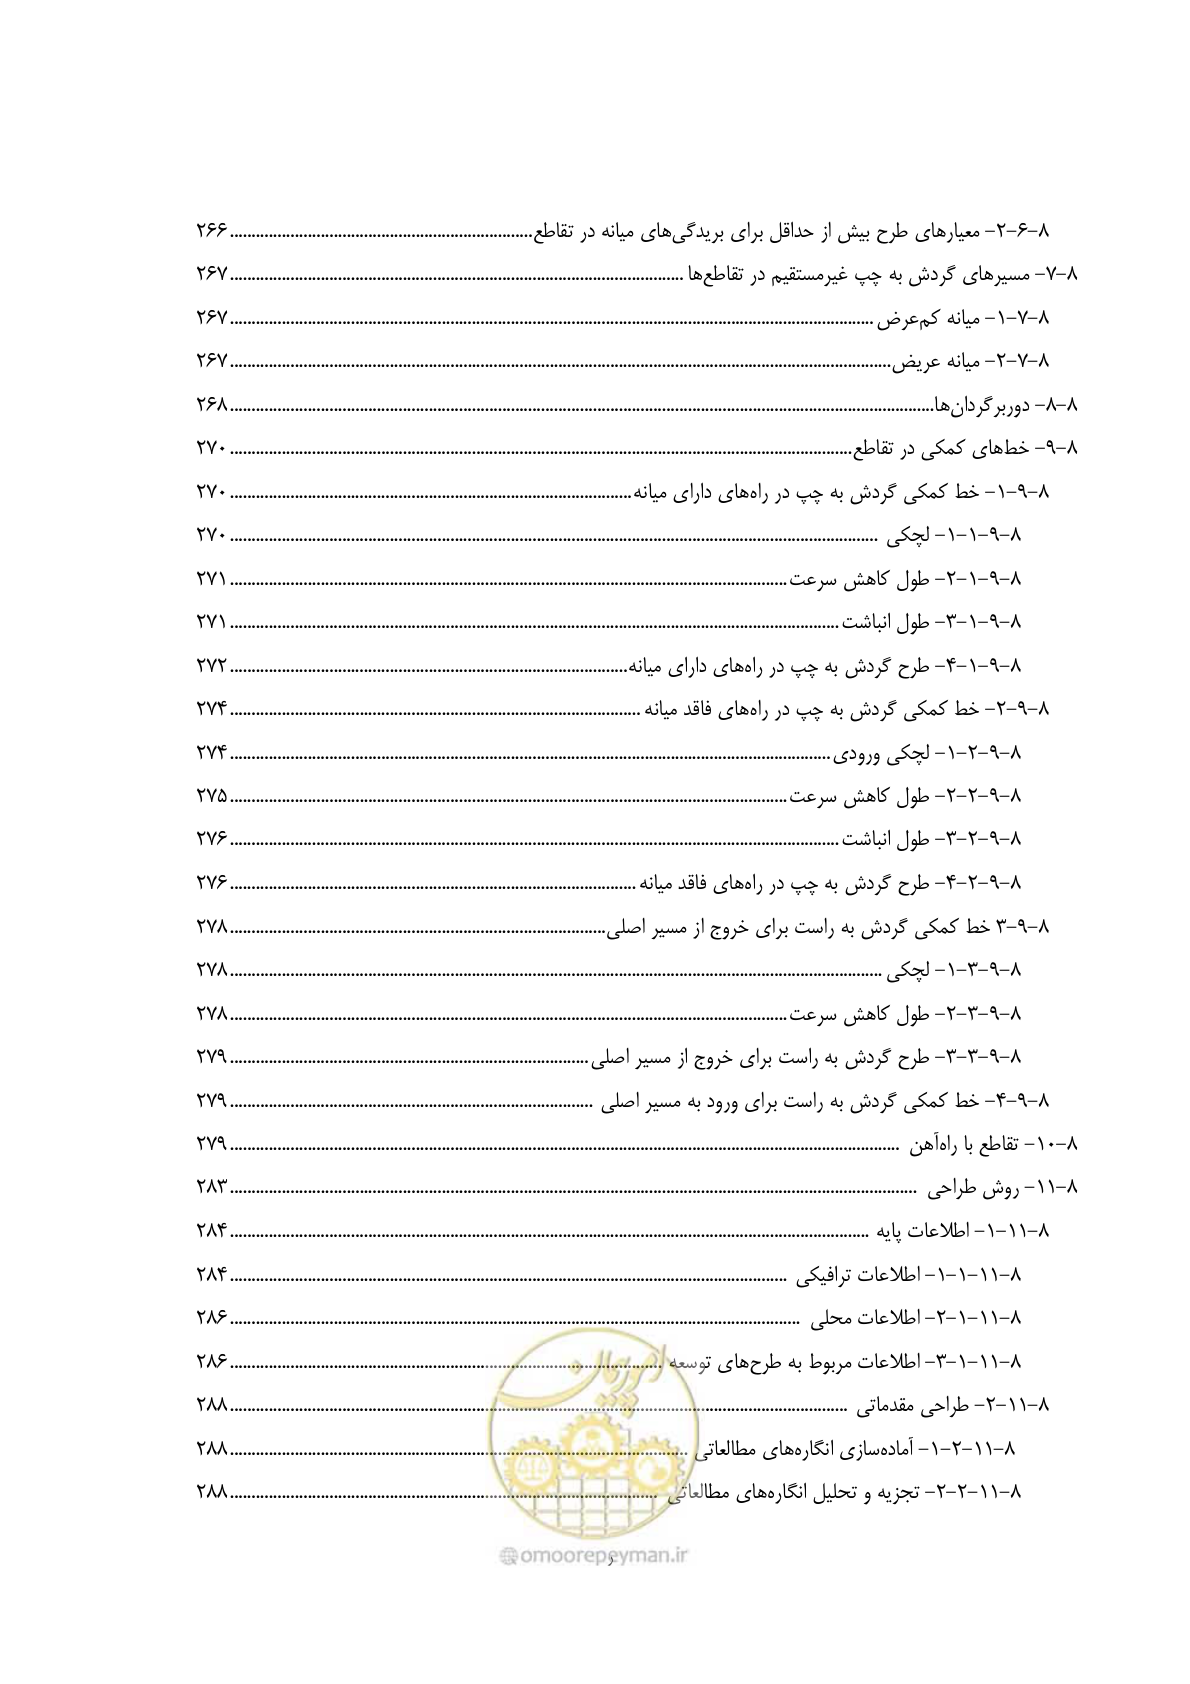 ۸-۶-۲- معیارهای طرح بیش از حداقل برای بریدگی‌های میانه در تقاطع ۲۶۶
۸-۷- مسیرهای گردش به چپ غیرمستقیم در تقاطع‌ها ۲۶۷
۸-۷-۱- میانه کم‌عرض ۲۶۷
۸-۷-۲- میانه عریض ۲۶۷
۸-۸- دوربرگردان‌ها ۲۶۸
۸-۹- خط‌های کمکی در تقاطع ۲۷۰
۸-۹-۱- خط کمکی گردش به چپ در راه‌های دارای میانه ۲۷۰
۸-۹-۱-۱- لچکی ۲۷۰
۸-۹-۱-۲- طول کاهش سرعت ۲۷۱
۸-۹-۱-۳- طول انباشت ۲۷۱
۸-۹-۱-۴- طرح گردش به چپ در راه‌های دارای میانه ۲۷۲
۸-۹-۲- خط کمکی گردش به چپ در راه‌های فاقد میانه ۲۷۴
۸-۹-۲-۱- لچکی ورودی ۲۷۴
۸-۹-۲-۲- طول کاهش سرعت ۲۷۵
۸-۹-۲-۳- طول انباشت ۲۷۶
۸-۹-۲-۴- طرح گردش به چپ در راه‌های فاقد میانه ۲۷۶
۸-۹-۳ خط کمکی گردش به راست برای خروج از مسیر اصلی ۲۷۸
۸-۹-۳-۱- لچکی ۲۷۸
۸-۹-۳-۲- طول کاهش سرعت ۲۷۸
۸-۹-۳-۳- طرح گردش به راست برای خروج از مسیر اصلی ۲۷۹
۸-۹-۴- خط کمکی گردش به راست برای ورود به مسیر اصلی ۲۷۹
۸-۱۰- تقاطع با راه‌آهن ۲۷۹
۸-۱۱- روش طراحی ۲۸۳
۸-۱۱-۱- اطلاعات پایه ۲۸۴
۸-۱۱-۱-۱- اطلاعات ترافیکی ۲۸۴
۸-۱۱-۱-۲- اطلاعات محلی ۲۸۶
۸-۱۱-۱-۳- اطلاعات مربوط به طرح‌های توسعه ۲۸۶
۸-۱۱-۲- طراحی مقدماتی ۲۸۸
۸-۱۱-۲-۱- آماده‌سازی انگاره‌های مطالعاتی ۲۸۸
۸-۱۱-۲-۲- تجزیه و تحلیل انگاره‌های مطالعاتی ۲۸۸
امور پیمان
@omoorepeyman.ir